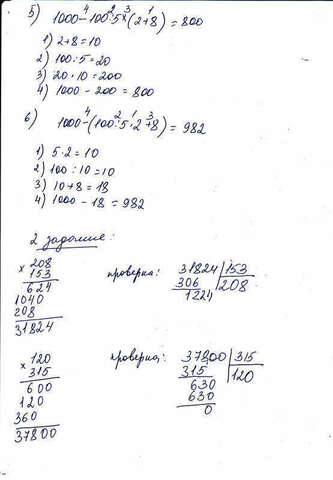 5) 1000-100:5*(2+8) = 800
4 2 3 1
1) 2+8=10
2) 100:5=20
3) 20·10=200
4) 1000-200=800
6) 1000-(100:5·2+8) = 982
4 2 1 3
1) 5·2=10
2) 100:10=10
3) 10+8=18
4) 1000-18=982
2 задание:
× 208
153
624
1040
208
31824
проверка: 31824 | 153
306 208
1224
× 120
315
600
120
360
37800
проверка: 37800 | 315
315 120
630
630
0